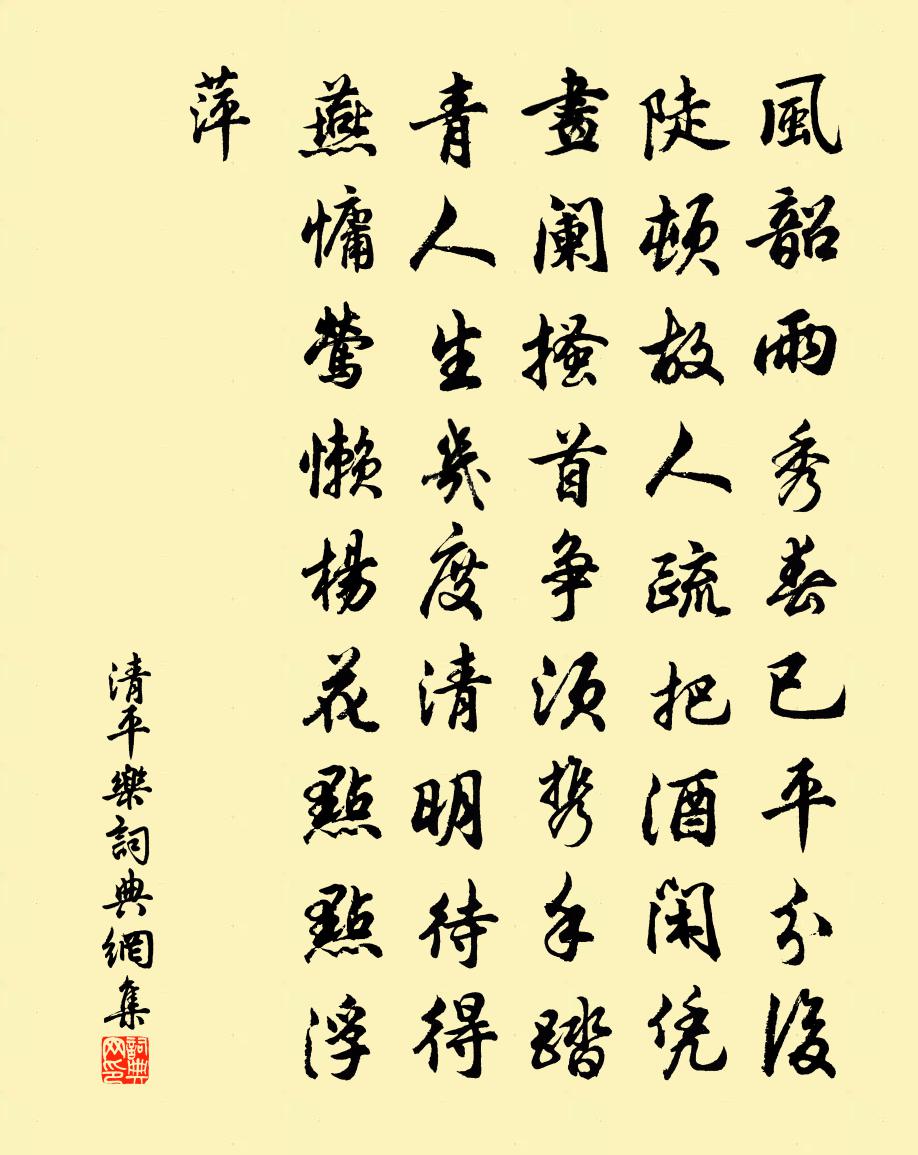 風韶雨秀春已平分後
陡頓故人疏把酒闲凭
畫阑搔首争须携手踏
青人生幾度清明待得
燕慵鶯懒楊花點點浮
萍
清平樂詞典網集
詞典网印